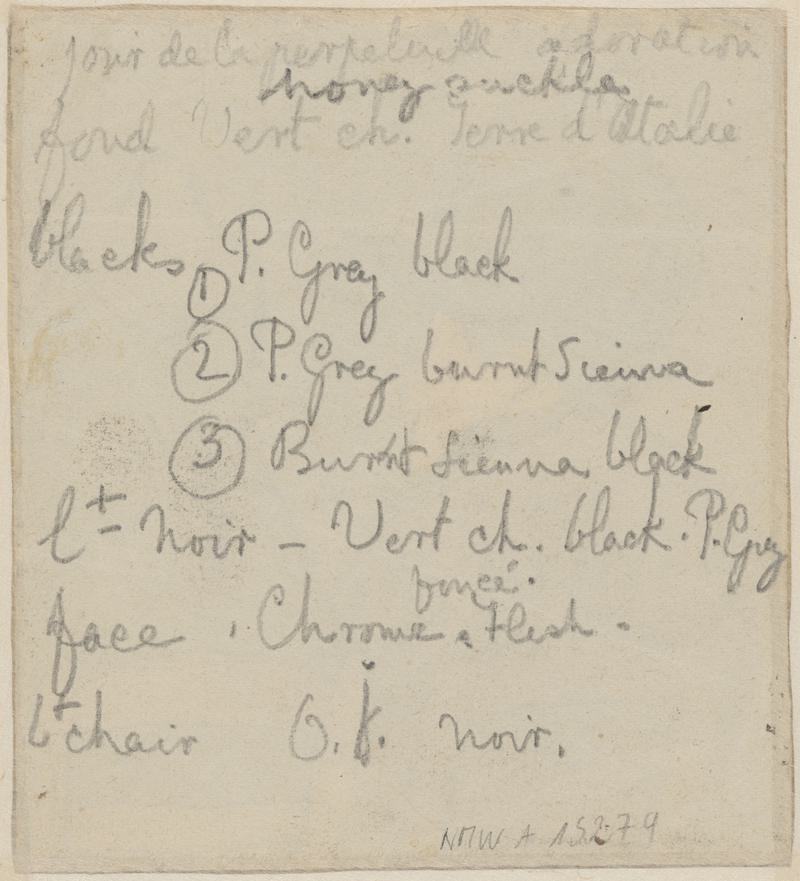 jour de la perpetuelle adoration
honey suckle
fond Vert ch. Terre d'Italie
blacks ① P. Grey black
② P. Grey burnt Sienna
③ Burnt Sienna black
l<sup>t</sup> noir - Vert ch. black. P. Grey
foncé.
face . Chrome . Flesh .
chair O. J. noir.
NMW A 15279